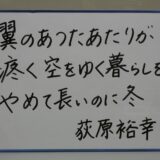 翼のあつたあたりが
疼く空をゆく暮らしを
やめて長いのに冬
荻原裕幸